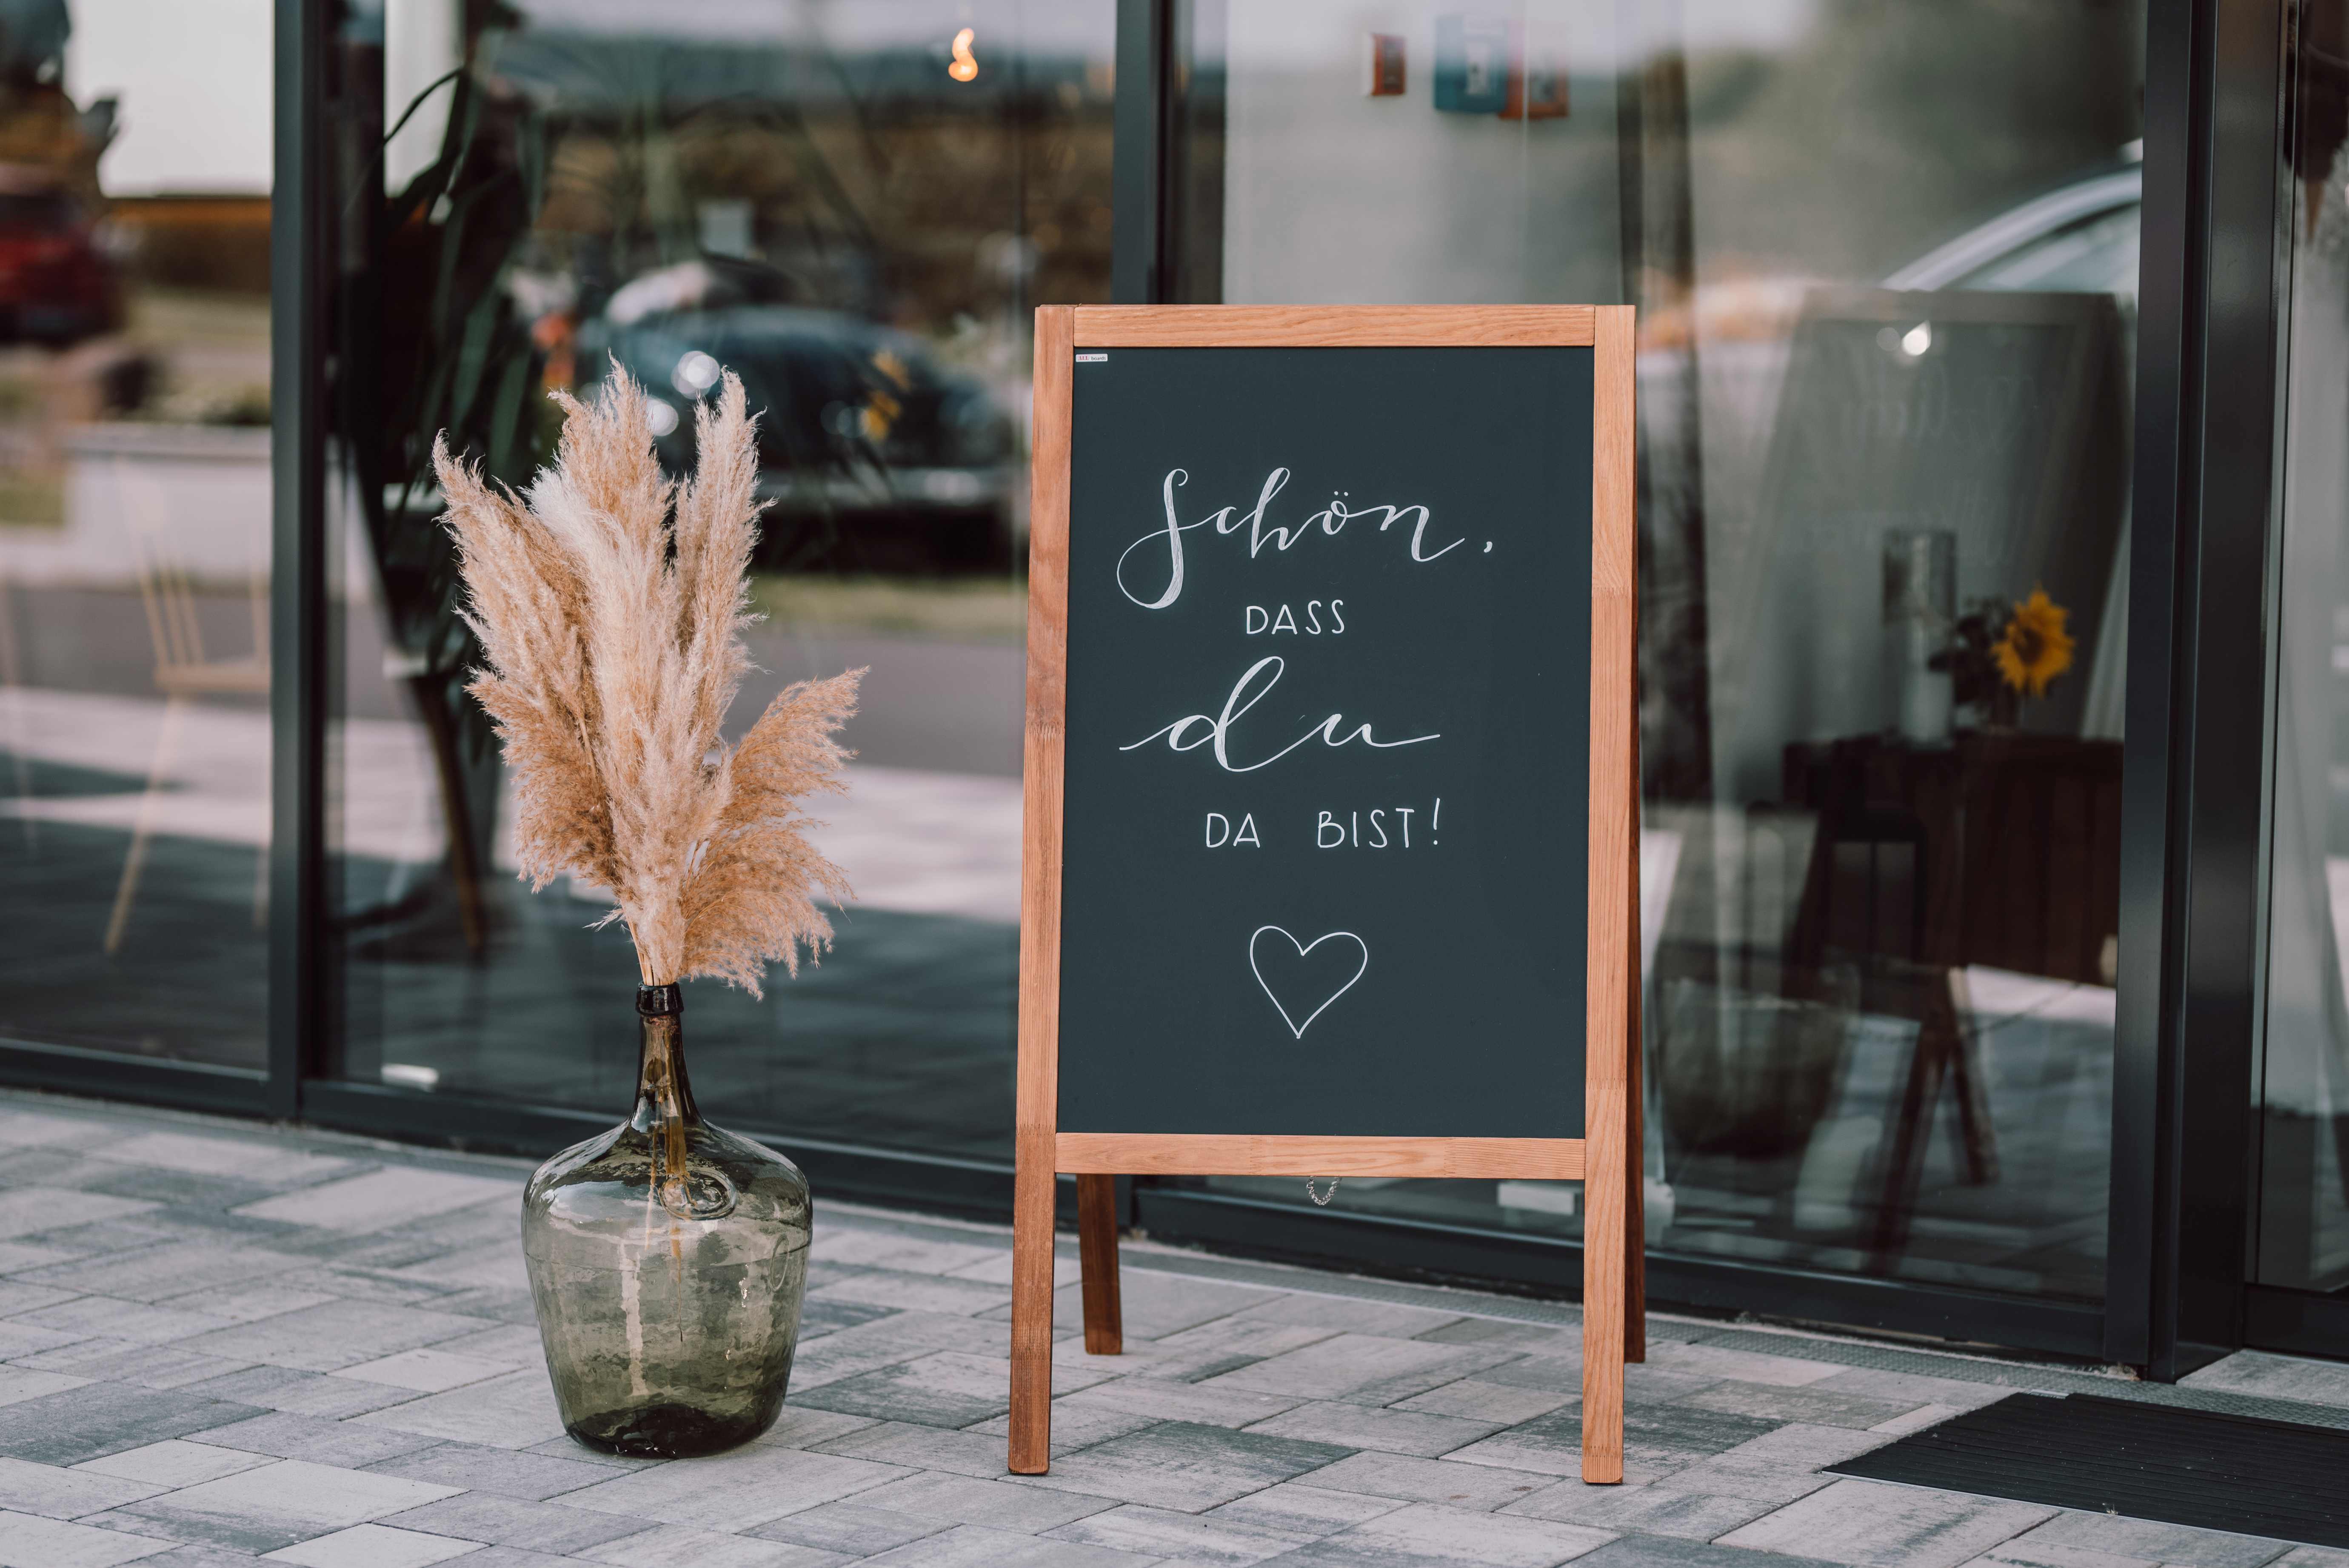 Schön,
DASS
du
DA BIST!